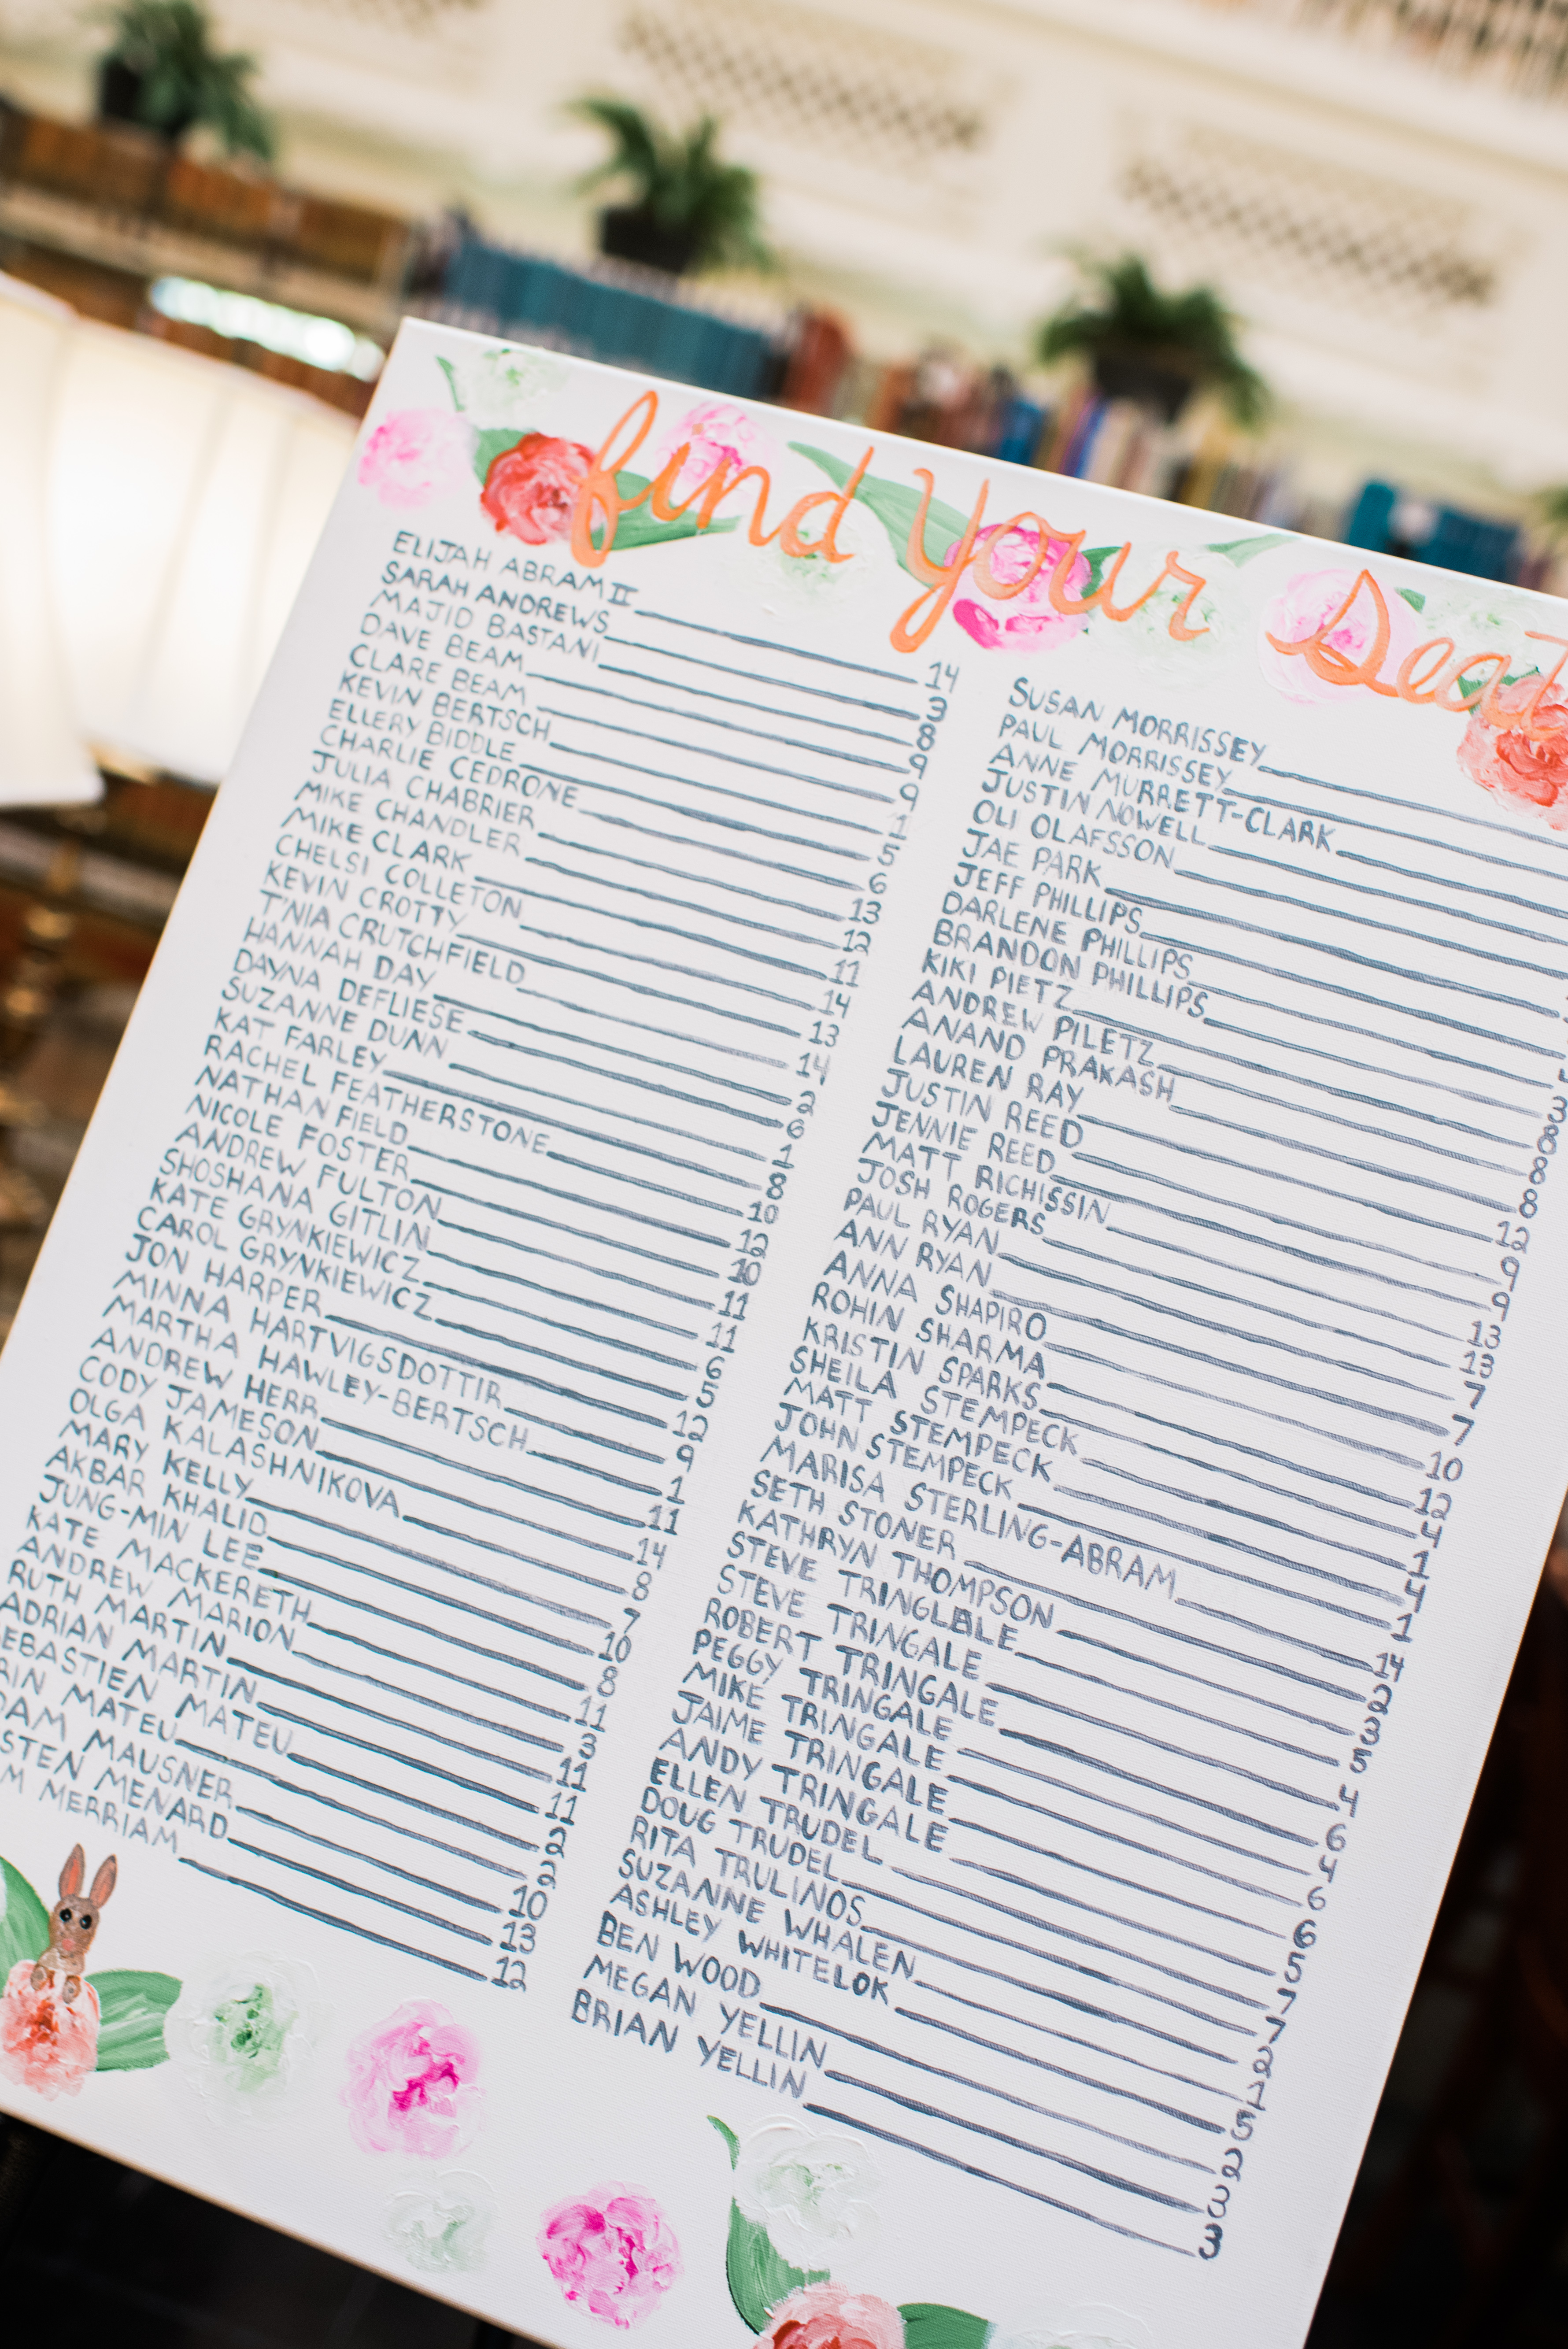 find your seat
ELIJAH ABRAM II 14
SARAH ANDREWS 3
MAJID BASTANI 8
DAVE BEAM 9
CLARE BEAM 9
KEVIN BERTSCH 1
ELLERY BIDDLE 5
CHARLIE CEDRONE 6
JULIA CHABRIER 13
MIKE CHANDLER 12
MIKE CLARK 11
CHELSI COLLETON 14
KEVIN CROTTY 13
T'NIA CRUTCHFIELD 14
HANNAH DAY 2
DAYNA DEFLIESE 6
SUZANNE DUNN 1
KAT FARLEY 8
RACHEL FEATHERSTONE 10
NATHAN FIELD 12
NICOLE FOSTER 10
ANDREW FULTON 11
SHOSHANA GITLIN 11
KATE GRYNKIEWICZ 6
CAROL GRYNKIEWICZ 5
JON HARPER 12
MINNA HARTVIGSDOTTIR 9
MARTHA HAWLEY-BERTSCH 1
ANDREW HERR 11
CODY JAMESON 14
OLGA KALASHNIKOVA 8
MARY KELLY 7
AKBAR KHALID 10
JUNG-MIN LEE 8
KATE MACKERETH 11
ANDREW MARION 3
RUTH MARTIN 11
ADRIAN MARTIN 11
EBASTIEN MATEU 2
RIN MATEU 2
DAM MAUSNER 10
STEN MENARD 13
M MERRIAM 12
SUSAN MORRISSEY
PAUL MORRISSEY
ANNE MURRETT-CLARK
JUSTIN NOWELL
OLI OLAFSSON
JAE PARK
JEFF PHILLIPS
DARLENE PHILLIPS
BRANDON PHILLIPS 3
KIKI PIETZ 8
ANDREW PILETZ 8
ANAND PRAKASH 8
LAUREN RAY 12
JUSTIN REED 9
JENNIE REED 9
MATT RICHISSIN 13
JOSH ROGERS 13
PAUL RYAN 7
ANN RYAN 7
ANNA SHAPIRO 10
ROHIN SHARMA 12
KRISTIN SPARKS 4
SHEILA STEMPECK 1
MATT STEMPECK 4
JOHN STEMPECK 1
MARISA STERLING-ABRAM 14
SETH STONER 2
KATHRYN THOMPSON 3
STEVE TRINGLALE 5
STEVE TRINGALE 4
ROBERT TRINGALE 6
PEGGY TRINGALE 4
MIKE TRINGALE 6
JAIME TRINGALE 6
ANDY TRINGALE 5
ELLEN TRUDEL 7
DOUG TRUDEL 7
RITA TRULINOS 2
SUZANNE WHALEN 1
ASHLEY WHITELOK 5
BEN WOOD 2
MEGAN YELLIN 3
BRIAN YELLIN 3